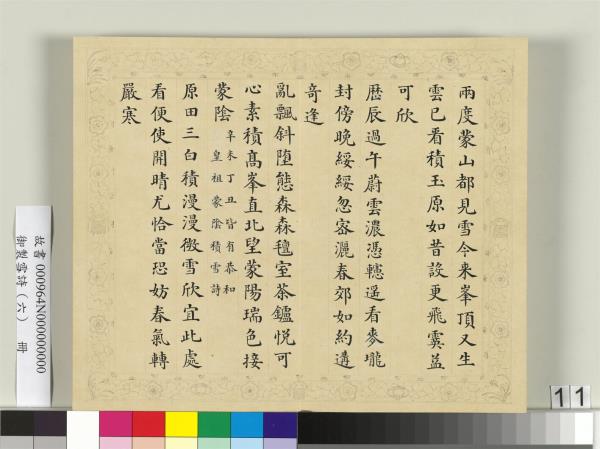 兩度蒙山都見雪今來峯頂又生
雲已看積玉原如昔設更飛霙益
可欣
歴辰過午蔚雲濃憑轖遥看麥壠
封傍晚綏綏忽密灑春郊如約遘
竒逢
亂飄斜墮態森森氊室茶鑪悦可
心素積髙峯直北望蒙陽瑞色接
蒙陰辛未丁丑皆有恭和
皇祖蒙陰積雪詩
原田三白積漫漫微雪欣宜此處
看便使開晴尤恰當恐妨春氣轉
嚴寒
故書 000964N000000000
御製雪詩（六） 冊
11